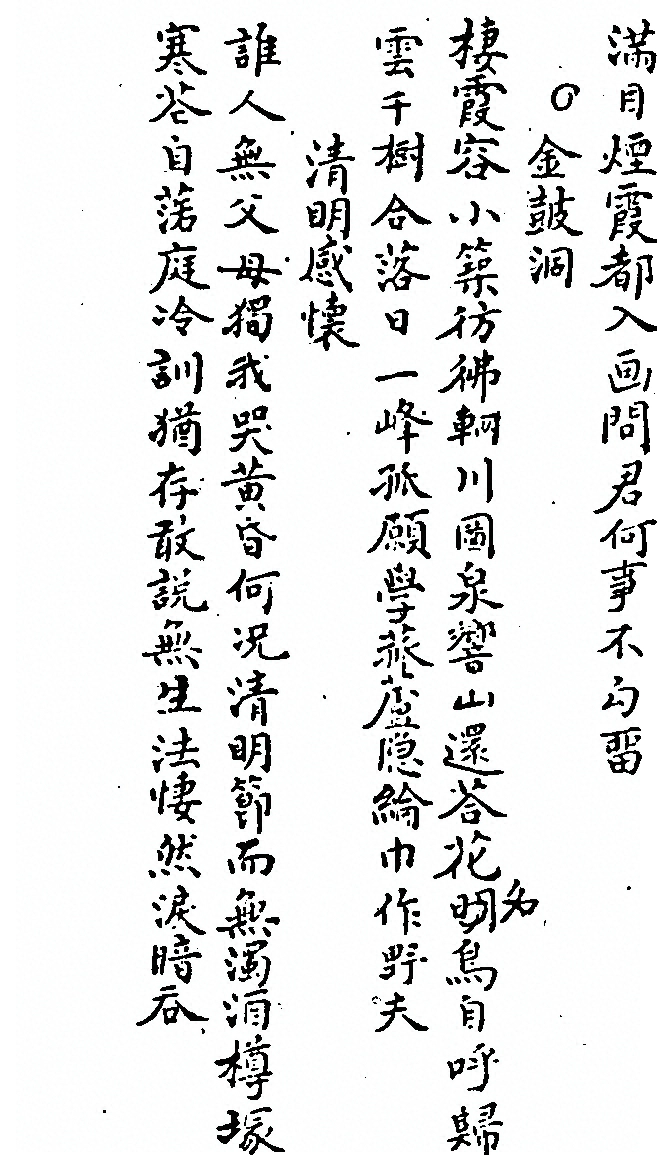 满目煙霞都入画問君何事不勾畱
金鼓洞
棲霞容小築彷彿輞川圖泉響山還荅花明鳥自呼歸
名
雲千樹合落日一峰孤願學菰蘆隐綸巾作野夫
清明感懷
誰人無父母獨我哭黄昏何况清明節而無濁酒樽塚
寒苍自落庭冷訓猶存敢説無生法悽然淚暗吞